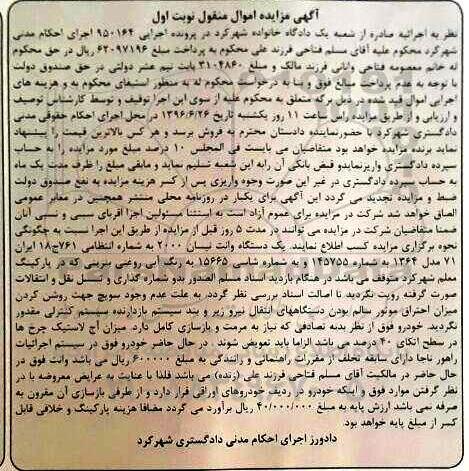 آگهی مزایده اموال منقول نوبت اول
نظر به اجرائیه صادره از شعبه یک دادگاه خانواده شهرکرد در پرونده اجرایی ۹۵۰۱۶۴ اجرای احکام مدنی
شهرکرد محکوم علیه آقای مسلم فتاحی فرزند علی محکوم به پرداخت مبلغ ۶۲۰۹۷۱۹۶ ریال در حق محکوم
له خانم معصومه فتاحی وانانی فرزند مالک و مبلغ ۳۱۰۴۸۶۰ بابت نیم عشر دولتی در حق صندوق دولت
با توجه به عدم پرداخت مبلغ فوق و بنا به درخواست محکوم له به منظور استیفای محکوم به و هزینه های
اجرایی اموال قید شده در ذیل برگ متعلق به محکوم علیه از سوی این اجرا توقیف و توسط کارشناس توصیف
و ارزیابی و از طریق مزایده راس ساعت ۱۱ روز یکشنبه تاریخ ۱۳۹۶/۶/۲۶ در محل اجرای احکام حقوقی مدنی
دادگستری شهرکرد با حضور نماینده دادستان محترم به فروش برسد و هر کس بالاترین قیمت را پیشنهاد
نماید برنده مزایده خواهد بود متقاضیان می بایست فی المجلس ۱۰ درصد مبلغ مورد مزایده را به حساب
سپرده دادگستری واریز نماید و قبض بانکی آن را به این شعبه تسلیم نماید و مابقی مبلغ را ظرف مدت یک ماه
به حساب سپرده دادگستری در غیر این صورت وجوه واریزی پس از کسر هزینه مزایده به نفع صندوق دولت
ضبط و مزایده تجدید می گردد این آگهی برای یکبار در روزنامه محلی منتشر همچنین در معابر عمومی
الصاق خواهد شد شرکت در مزایده برای عموم آزاد است به استثنا مسئولین اجرا اقربای سببی و نسبی آنان
ضمنا متقاضیان شرکت در مزایده می توانند در مدت ۵ روز قبل از مزایده از طریق این اجرا نسبت به چگونگی
نحوه برگزاری مزایده کسب اطلاع نمایند. یک دستگاه وانت نیسان ۲۰۰۰ به شماره انتظامی ۷۶۱ج۱۸ ایران
۷۱ مدل ۱۳۶۴ به شماره ۱۴۵۷۵۵ و به شماره شاسی ۱۵۶۶۵ به رنگ آبی روغنی بنزینی که در پارکینگ
معلم شهرکرد متوقف می باشد در هنگام بازدید اسناد مسلم الصدور بدو شماره گذاری و تسلسل نقل و انتقالات
صورت گرفته رویت نگردید تا اصالت اسناد بررسی نظر گردد، به علت عدم وجود سویچ جهت روشن کردن
میزان احتراق موتور سالم بودن دستگاههای انتقال نیرو زیر و بند سیستم بازدارنده سیستم کنترلی مقدور
نگردید. خودرو فوق از نظر بدنه تصادفی که نیاز به مرمت و بازسازی کامل دارد. میزان آج لاستیک چرخ ها
در سطح اتکای ۴۰ درصد می باشد الزاما باید تعویض شوند. در حال حاضر خودرو فوق در سیستم اجرائیات
راهور ناجا دارای سابقه تخلف از مقررات راهنمایی و رانندگی به مبلغ ۶۰۰۰۰۰۰ ریال می باشد وانت فوق در
حال حاضر در مالکیت آقای مسلم فتاحی فرزند علی (زنده) می باشد فلذا با عنایت به عرایض معروضه با در
نظر گرفتن موارد فوق و اینکه خودرو در ردیف خودروهای اوراقی قرار دارد و از طرفی بازسازی آن مقرون به
صرفه نمی باشد ارزش پایه به مبلغ ۴۰/۰۰۰/۰۰۰ ریال برآورد می گردد مضافا هزینه پارکینگ و خلافی قابل
کسر از مبلغ پایه خواهد بود.
دادورز اجرای احکام مدنی دادگستری شهرکرد